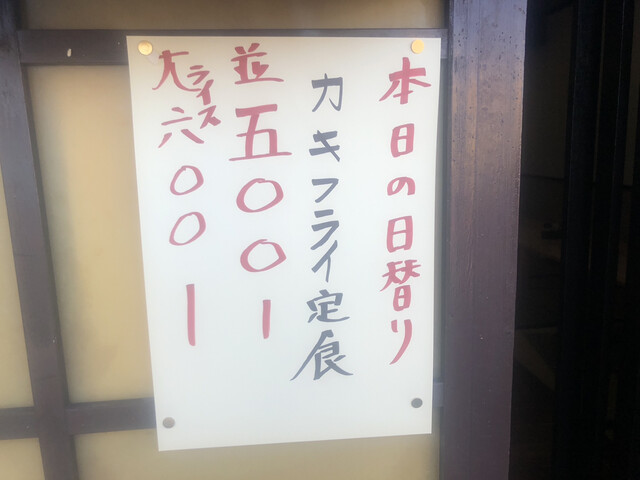 本日の日替り
カキフライ定食
並五〇〇ー
大ライス六〇〇ー